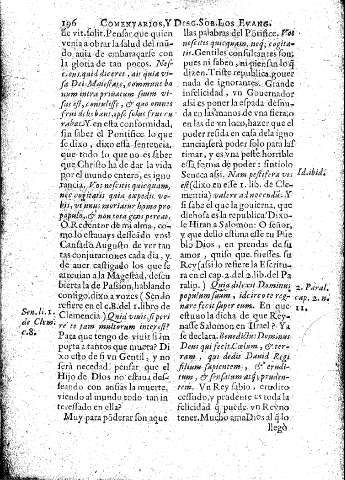 196 COMENTARIOS, Y DISC. SOB. LOS EVANG.
se vit. solit. Pensar que quien
venia a obrar la salud del mũ-
do, auia de embaraçarse con
la gloria de tan pocos. Nes-
cit, quid diceret, aut quia vi-
sa Dei Maiestate, commune bo-
num intra privatum suum vi-
sus est, consulesse, & quo omnes
frui debebant, ipse solus frui cu-
rabat. Y en esta conformidad,
sin saber el Pontifice lo que
se dixo, dixo esta sentencia,
que todo lo que no es saber
que Christo ha de dar la vida
por el mundo entero, es igno
rancia. Vos nescitis quicquam,
nec cogitatis quia expedit vo-
bis, vt vnus moriatur homo pro
populo, & non tota gens pereat.
O Redentor de mi alma, co-
mo lo estauays desseado vos!
Cansado Augusto de ver tan
tas conjuraciones cada dia, y
de auer castigado los que se
atreuian a la Magestad, descu
bierta de Passion, hablando
consigo, dixo a vozes (Sen. lo
refiere en el c.8. del 1. libro de
Clemencia) Quid viuis, si peri
re te tam multorum interest?
Para que tengo de viuir si im
porta a tantos que muera? Di
xo esto de si vn Gentil, y no
serà necedad pensar que el
Hijo de Dios no estaua des-
seando con ansias la muerte,
viendo al mundo todo tan in
teressado en ella?
Muy para põderar son aque
llas palabras del Põtifice. Vos
nescitis quicquam, neq; cogita-
tis. Gentiles consultantes son,
pues ni saben, ni piensan lo q̃
dizen. Triste republica, gouer
nada de ignorantes. Grande
infelicidad, vn Gouernador
assi es poner la espada desnu-
da en las manos de vna fiera, o
en las de vn loco, hazer que el
poder resida en casa de la igno
rancia, serà poder solo para las
timar, y es vna peste horrible
essa forma de poder: sintiolo
Seneca assi. Nam pestifera vos
est (dixo en esse 1. lib. de Cle-
mentia) valere ad nocendũ. Y
si sabe el que la gouierna, que
dichosa es la republica! Dixo-
le Hiran a Salomon: O señor,
y que dello que ama este tu Pue
blo Dios, en prendas de su
amor, quiso que fuesses su
Rey (assi lo refiere la Escritu-
ra en el cap. 2. del 2. lib. del Pa
ralip.) Quia dilexit Dominus
populum suum, idcirco te reg-
nare fecit super eum. En que
estuuo la dicha de que Rey-
nasse Salomon en Israel? Ya
se declara. Benedictus Dominus
Deus qui fecit Cœlum, & ter-
ram, qui dedit David Regi
filium sapientem, & erudi-
tum, & sensatum atq; pruden-
tem. Vn Rey sabio, erudito
cessudo, y prudente es toda la
felicidad q̃ puede vn Reyno
tener. Mucho ama Dios al q̃ lo
llegò
Id. ibid.
2. Paral.
cap. 2. n.
11.
Sen. li. 1.
de Clem.
c. 8.